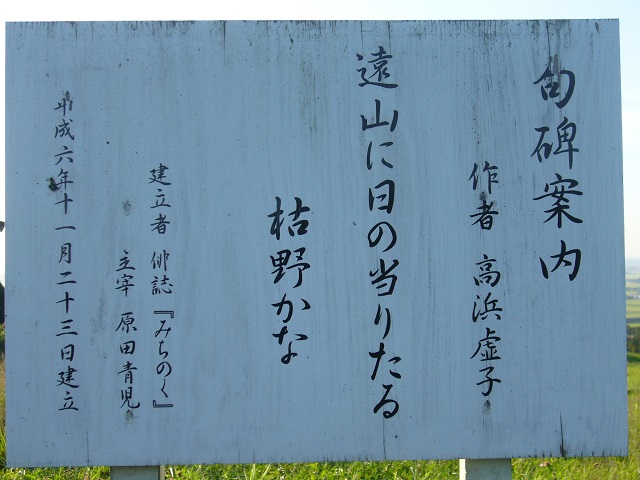 句碑案内
作者 高浜虚子
遠山に日の当りたる
枯野かな
建立者 俳誌『みちのく』
主宰 原田青児
平成六年十一月二十三日建立